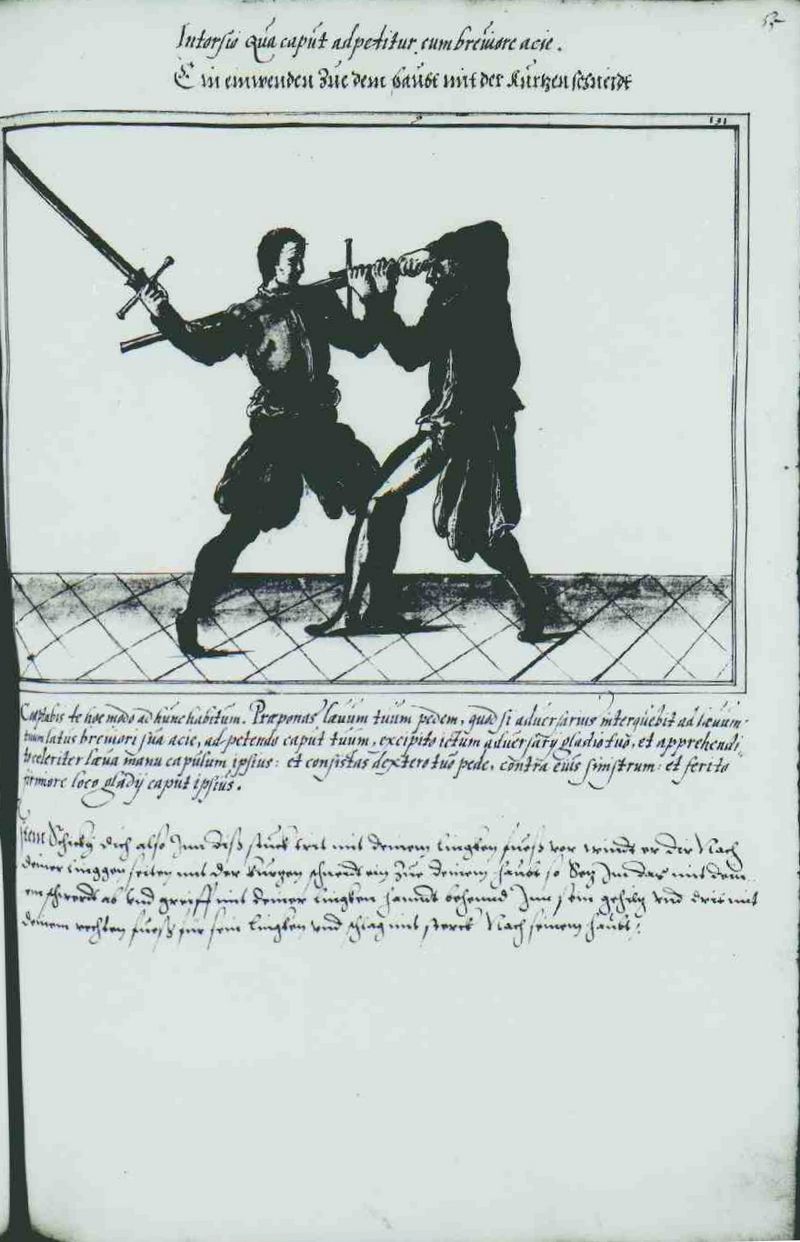 52
Intorsio qua caput adpetitur cum breuiore acie.
Ein einwenden Zue dem haubt mit der Kurtzen schneidt
131
Coaptabis te hoc modo ad hunc habitum. Præponas læuum tuum pedem, quod si aduersarius intorquebit ad læuum
tuum latus breuiori sua acie, adpetendo caput tuum, excipito ictum aduersarÿ gladio tuo, et apprehendi,
to celeriter læua manu capulum ipsius: et consistas dextero tuo pede, contra eius sinistrum: et ferito
firmiore loco gladÿ caput ipsius.
Item Schickh dich also Inn diß stuck trit mit deinem lingken fuess vor windt er dir Nach
deiner linggen seiten mit der kurtzen schneidt ein Zue deinem haubt so setz Im das mit dem
schwerdt ab vnd greiff mit deiner lingken hanndt behennd Inn sein gehiltz vnd drit mit
deinem rechten fuess für sein lingken vnd schlag mit sterck Nach seinem haubt: